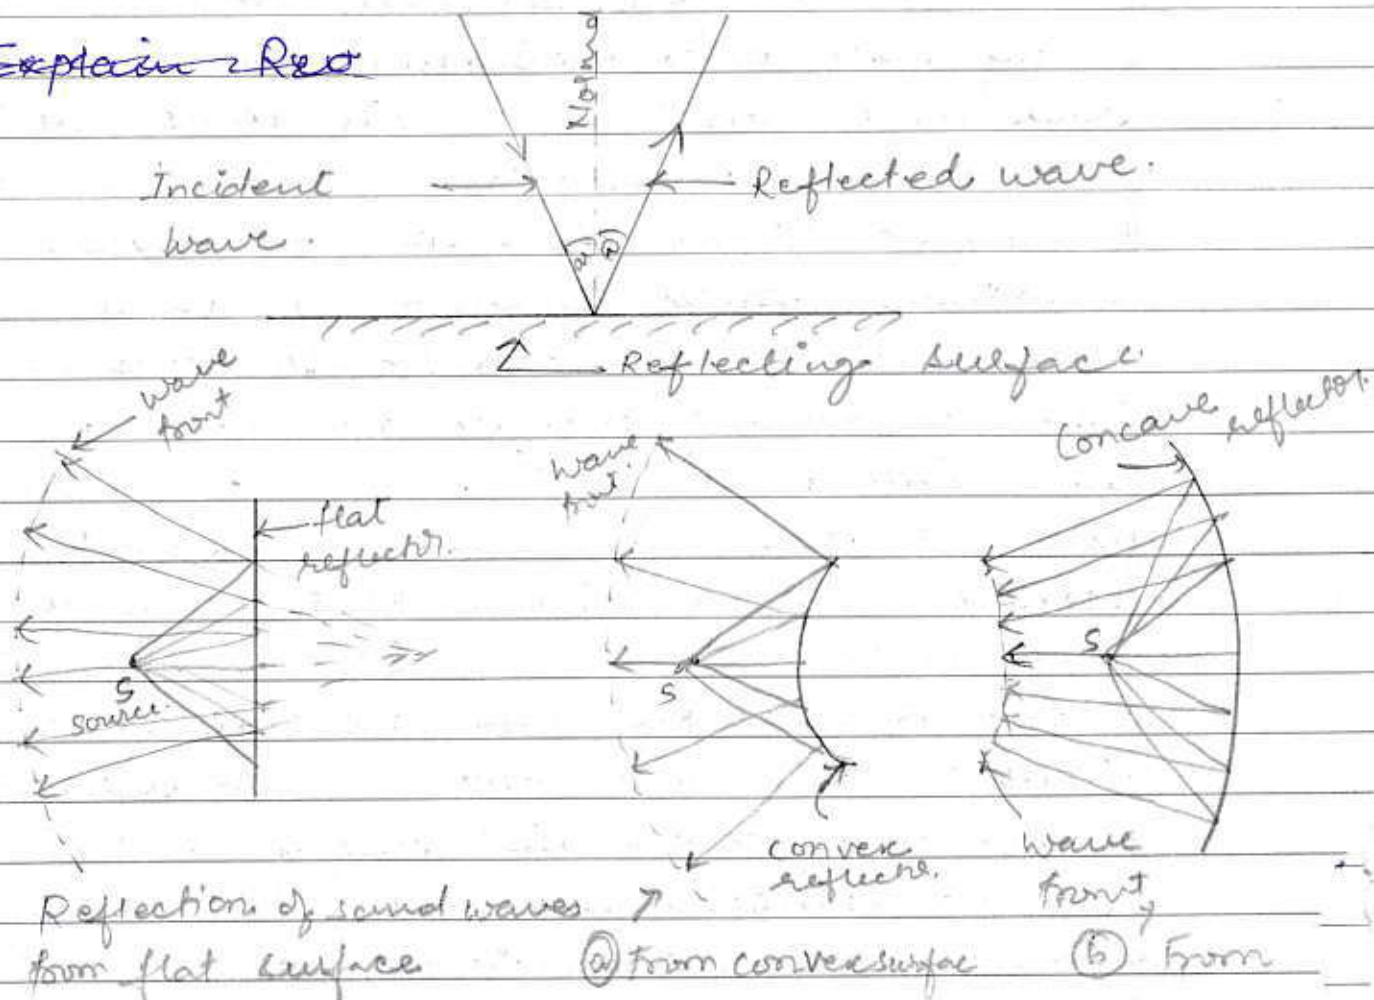 Explain Reo
Normal
Incident
wave.
Reflected wave.
Reflecting surface
wave
front
flat
reflector.
S
source.
wave
front.
S
convex
reflector.
Concave
reflector.
S
wave
front
Reflection of sound waves
from flat surface
(a) From convex surface
(b) From